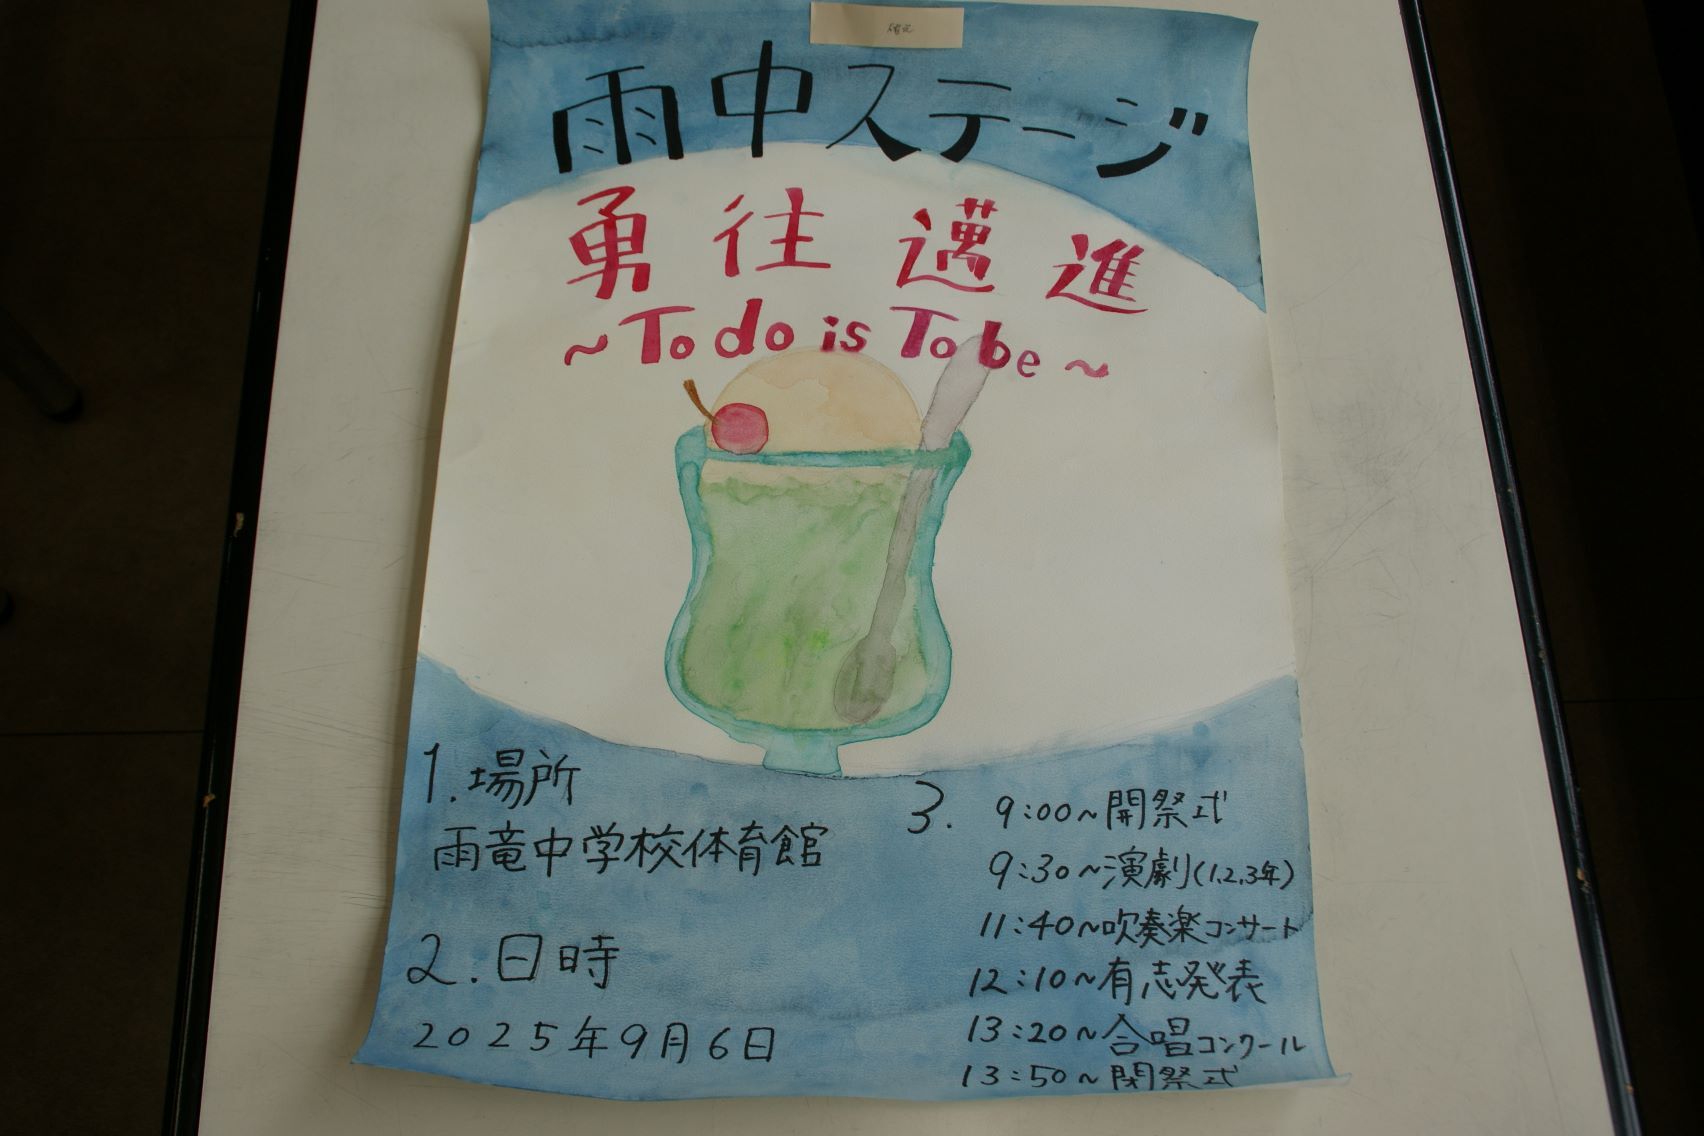 雨中ステージ
勇往邁進
～To do is To be～
1.場所
雨竜中学校体育館
2.日時
2025年9月6日
3. 9:00～開祭式
9:30～演劇(1,2,3年)
11:40～吹奏楽コンサート
12:10～有志発表
13:20～合唱コンクール
13:50～閉祭式